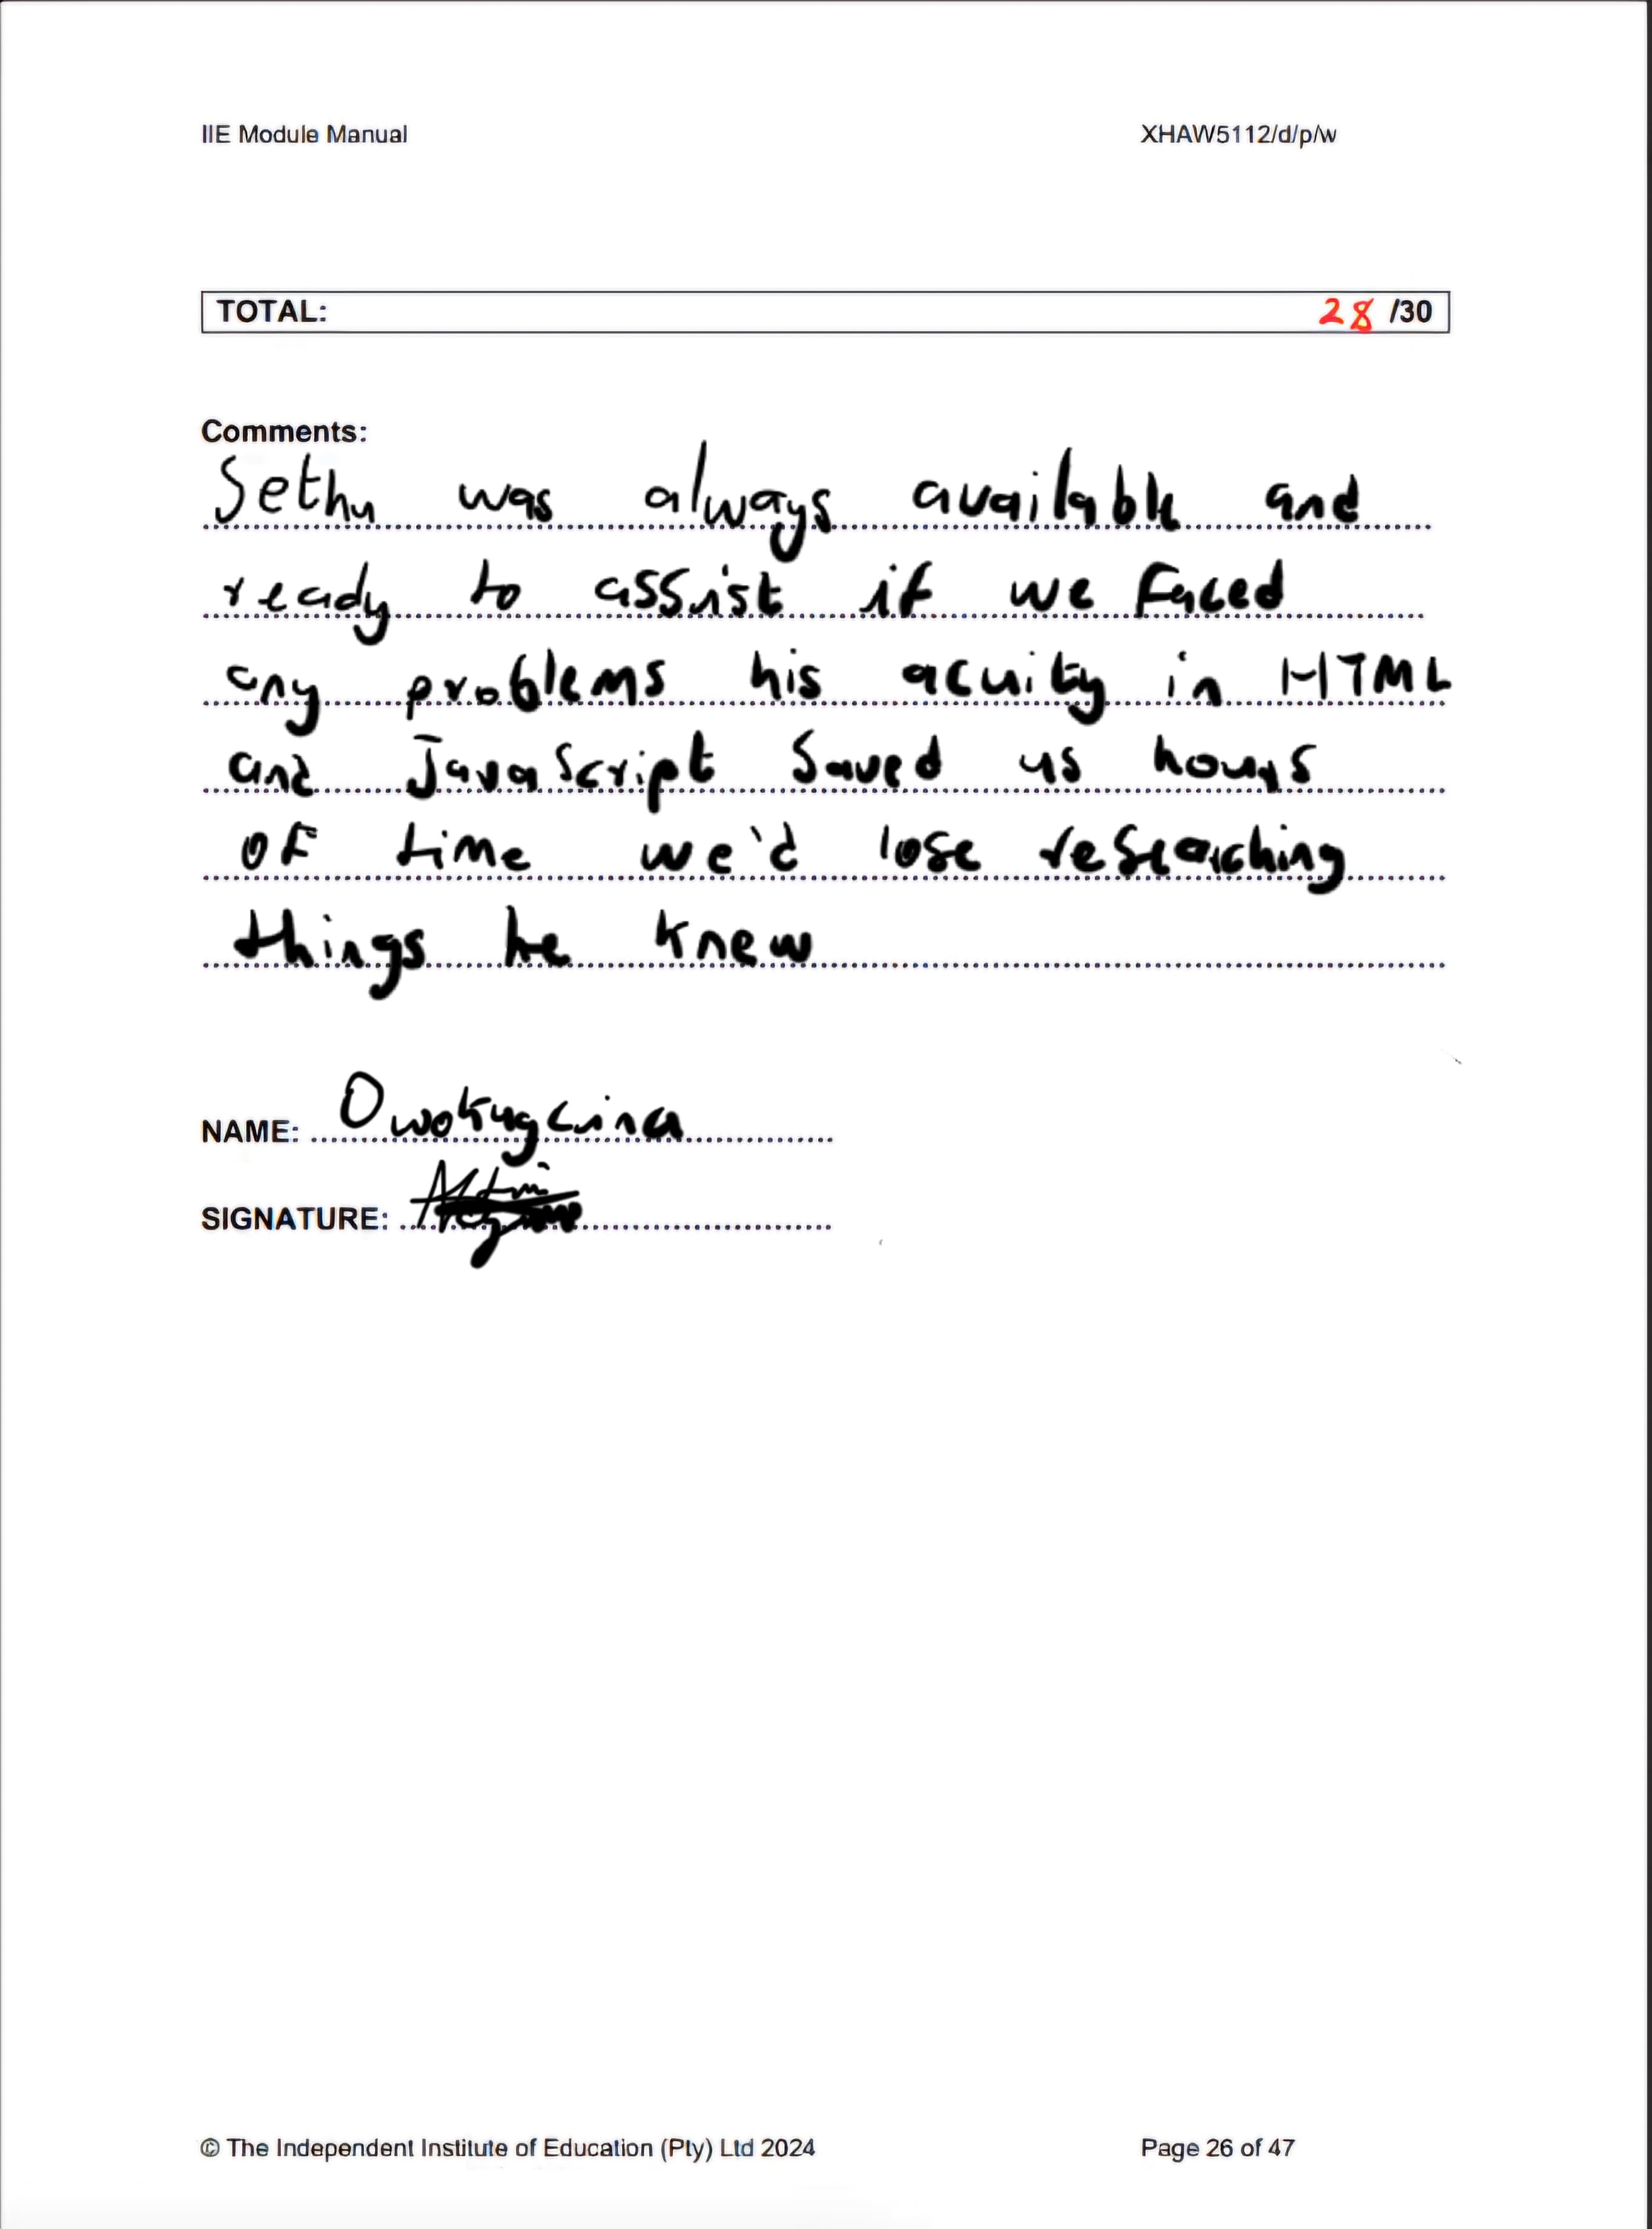 IIE Module Manual XHAW5112/d/p/w
TOTAL: 28 /30
Comments:
Sethu was always available and
ready to assist if we faced
any problems his acuity in HTML
and JavaScript saved us hours
of time we'd lose researching
things he knew
NAME: Owokugcina
SIGNATURE:
© The Independent Institute of Education (Pty) Ltd 2024 Page 26 of 47